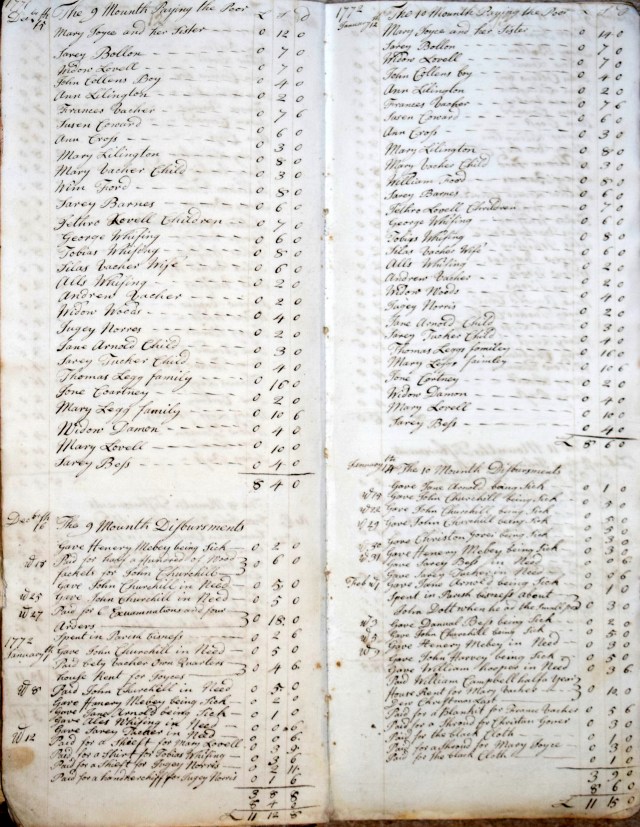 The 9 Mounth Paying the Poor £ S D
Mary Joyce and her Sister 0 12 0
Sarey Bollon 0 7 0
Widow Lovell 0 7 0
John Collens Boy 0 4 0
Ann Lilington 0 2 0
Frances Vacher 0 7 6
Susen Coward 0 6 0
Ann Cross 0 3 0
Mary Lilington 0 8 0
Mary Vacher Child 0 3 0
Wim Ford 0 8 0
Sarey Barnes 0 6 0
Jethro Lovell Children 0 7 0
George Whifing 0 6 0
Tobias Whifing 0 8 0
Silas Vacher Wife 0 6 0
Alls Whifing 0 2 0
Andrew Vacher 0 2 0
Widow Woods 0 4 0
Jugey Norres 0 2 0
Jane Arnold Child 0 3 0
Sarey Tucker Child 0 4 0
Thomas Legg family 0 16 0
Jone Courtney 0 2 0
Mary Legg family 0 10 6
Widow Damon 0 4 0
Mary Lovell 0 10 0
Sarey Bess 0 4 0
8 4 0
The 9 Mounth Disbursments
Gave Henery Mebey being Sick 0 2 0
Paid for half a Hundred of Wood 0 6 0
Jackets for John Churchill
Gave John Churchill in Need 0 5 0
25 Gave John Churchill in Need 0 5 0
27 Paid for 6 Examinations and four
Arders 0 18 0
Spent in Parish bisness 0 2 6
1772
January Gave John Churchill in Need 0 5 0
Paid bety Vacher Quarters
house Rent for Joyces 0 4 6
8 Paid John Churchill in Need 0 5 0
Gave Henery Mebey being Sick 0 2 0
Gave Jane Arnold being Sick 0 1 0
Gave Alls Whifing in Need
Gave Sarey Tucker in Need
12 Paid for a Sheeft for Mary Lovell
Paid for a Shirt for Tobias Whifing
Paid for a Sheeft for Jugey Norris
Paid for a handkerchiff for Jugey Norris 0 1 6
3 8 8
8 4 0
£ 11 12 8
1772
January The 10 Mounth Paying the Poor
Mary Joyce and her Sister 0 14 0
Sarey Bollon 0 7 0
Widow Lovell 0 7 0
John Collens boy 0 4 0
Ann Lilington 0 2 0
Frances Vacher 0 7 6
Susen Coward 0 6 0
Ann Cross 0 3 0
Mary Lilington 0 8 0
Mary Vacher Child 0 3 0
William Ford 0 8 0
Sarey Barnes 0 6 0
Jethro Lovell Children 0 7 0
George Whifing 0 6 0
Tobias Whifing 0 8 0
Silas Vacher Wife 0 6 0
Alls Whifing 0 2 0
Andrew Vacher 0 2 0
Widow Woods 0 4 0
Jugey Norris 0 2 0
Jane Arnold Child 0 3 0
Sarey Tucker Child 0 4 0
Thomas Legg familey 0 16 0
Mary Legg familey 0 10 6
Jone Cortney 0 2 0
Widow Damon 0 4 0
Mary Lovell
Sarey Bess 0 4 0
£ 8 6 0
January The 10 Mounth Disbursments
Gave Jane Arnold being Sick 0 1 0
Gave John Churchill being Sick
Gave John Churchill being Sick
Gave John Churchill being Sick
Gave Christon Gover being Sick
Gave Henery Mebey being Sick
Gave Sarey Bess in Need
Gave Sarey Tucker in Need
Gave Jane Arnold being Sick 0 1 0
Spent in Parish bisness about
John Doll when he as the Small pox 0 3 0
Gave Danual Bess being Sick 0 2 0
Gave John Churchill being Sick 0 5 0
Gave Henery Mebey in Need 0 3 0
Gave John Harvey being Sick 0 5 0
Gave William in Need
Paid William Campbell halfa Year
House Rent for Mary Vacher
Dew Christmas Last
Paid for a Blanket for Frances Vacher
Paid for a Shroud for Christan Gover 0 3 0
Paid for the black Cloth 0 1 0
Paid for a Shroud for Mary Joyce 0 3 0
Paid for the black Cloth 0 1 0
3 9 0
8 6 0
£ 11 15 0